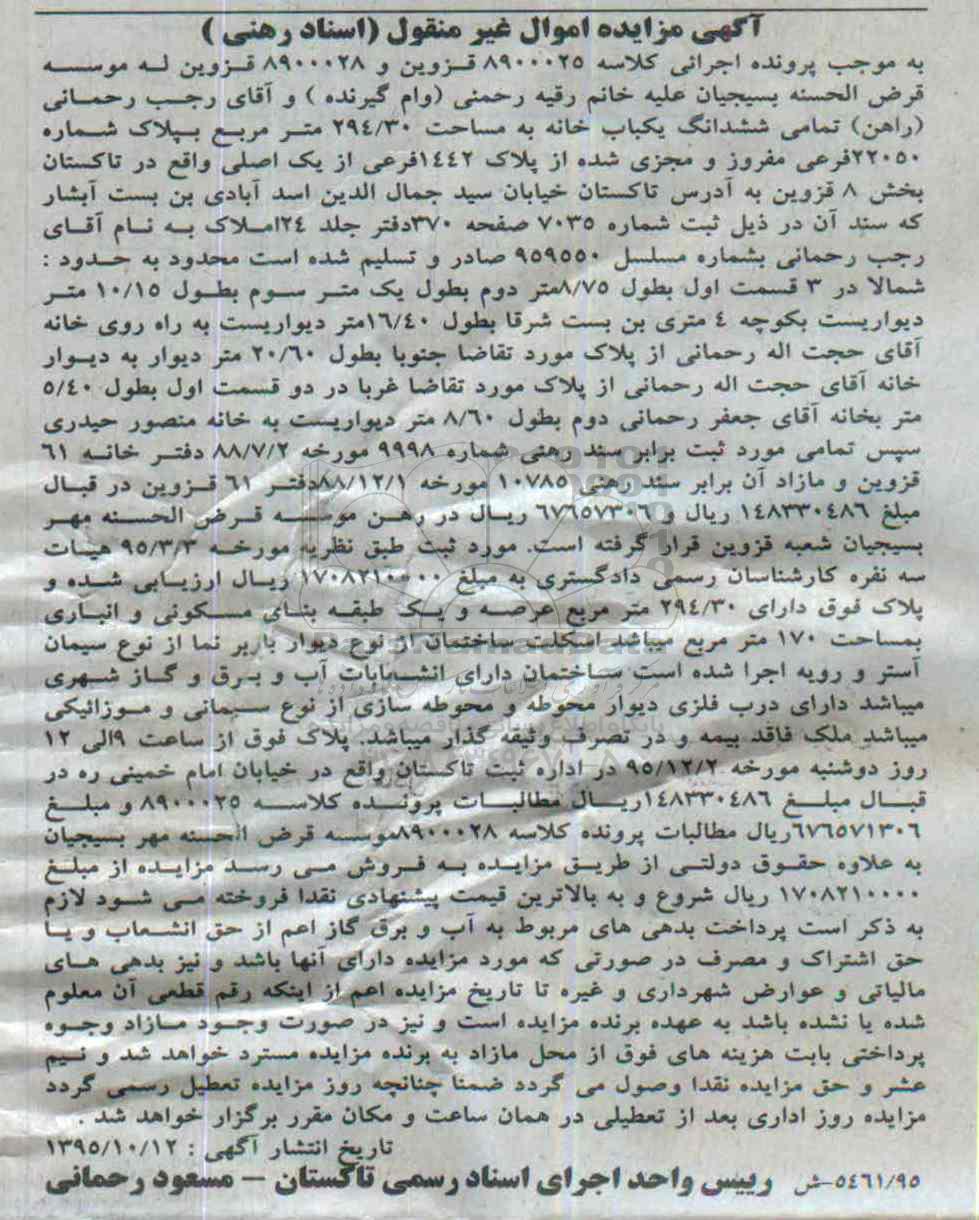 آگهی مزایده اموال غیر منقول (اسناد رهنی )
به موجب پرونده اجرائی کلاسه ۸۹۰۰۰۲۵ قزوین و ۸۹۰۰۰۲۸ قزوین له موسسه
قرض الحسنه بسیجیان علیه خانم رقیه رحمنی (وام گیرنده ) و آقای رجب رحمانی
(راهن) تمامی ششدانگ یکباب خانه به مساحت ۲۹٤/۳۰ متر مربع بپلاک شماره
۲۲۰۵۰فرعی مفروز و مجزی شده از پلاک ۱٤٤۲فرعی از یک اصلی واقع در تاکستان
بخش ۸ قزوین به آدرس تاکستان خیابان سید جمال الدین اسد آبادی بن بست آبشار
که سند آن در ذیل ثبت شماره ۷۰۳۵ صفحه ۳۷۰دفتر جلد ۲٤املاک به نام آقای
رجب رحمانی بشماره مسلسل ۹۵۹۵۵۰ صادر و تسلیم شده است محدود به حدود :
شمالا در ۳ قسمت اول بطول ۸/۷۵متر دوم بطول یک متر سوم بطول ۱۰/۱۵ متر
دیواریست بکوچه ٤ متری بن بست شرقا بطول ۱٦/٤۰متر دیواریست به راه روی خانه
آقای حجت اله رحمانی از پلاک مورد تقاضا جنوبا بطول ۲۰/٦۰ متر دیوار به دیوار
خانه آقای حجت اله رحمانی از پلاک مورد تقاضا غربا در دو قسمت اول بطول ۵/٤۰
متر بخانه آقای جعفر رحمانی دوم بطول ۸/٦۰ متر دیواریست به خانه منصور حیدری
سپس تمامی مورد ثبت برابر سند رهنی شماره ۹۹۹۸ مورخه ۸۸/۷/۲ دفتر خانه ٦۱
قزوین و مازاد آن برابر سند رهنی ۱۰۷۸۵ مورخه ۸۸/۱۲/۱دفتر ٦۱ قزوین در قبال
مبلغ ۱٤۸۳۳۰٤۸٦ ریال و ٦۷٦۵۷۳۰٦ ریال در رهن موسسه قرض الحسنه مهر
بسیجیان شعبه قزوین قرار گرفته است. مورد ثبت طبق نظریه مورخه ۹۵/۳/۳ هیات
سه نفره کارشناسان رسمی دادگستری به مبلغ ۱۷۰۸۲۱۰۰۰۰ ریال ارزیابی شده و
پلاک فوق دارای ۲۹٤/۳۰ متر مربع عرصه و یک طبقه بنای مسکونی و انباری
بمساحت ۱۷۰ متر مربع میباشد اسکلت ساختمان از نوع دیوار باربر نما از نوع سیمان
آستر و رویه اجرا شده است ساختمان دارای انشعابات آب و برق و گاز شهری
میباشد دارای درب فلزی دیوار محوطه و محوطه سازی از نوع سیمانی و موزائیکی
میباشد ملک فاقد بیمه و در تصرف وثیقه گذار میباشد. پلاک فوق از ساعت ۹الی ۱۲
روز دوشنبه مورخه ۹۵/۱۲/۲ در اداره ثبت تاکستان واقع در خیابان امام خمینی ره در
قبال مبلغ ۱٤۸۳۳۰٤۸٦ریال مطالبات پرونده کلاسه ۸۹۰۰۰۲۵ و مبلغ
٦۷٦۵۷۱۳۰٦ریال مطالبات پرونده کلاسه ۸۹۰۰۰۲۸موسسه قرض الحسنه مهر بسیجیان
به علاوه حقوق دولتی از طریق مزایده به فروش می رسد مزایده از مبلغ
۱۷۰۸۲۱۰۰۰۰ ریال شروع و به بالاترین قیمت پیشنهادی نقدا فروخته می شود لازم
به ذکر است پرداخت بدهی های مربوط به آب و برق گاز اعم از حق انشعاب و یا
حق اشتراک و مصرف در صورتی که مورد مزایده دارای آنها باشد و نیز بدهی های
مالیاتی و عوارض شهرداری و غیره تا تاریخ مزایده اعم از اینکه رقم قطعی آن معلوم
شده یا نشده باشد به عهده برنده مزایده است و نیز در صورت وجود مازاد وجوه
پرداختی بابت هزینه های فوق از محل مازاد به برنده مزایده مسترد خواهد شد و نیم
عشر و حق مزایده نقدا وصول می گردد ضمنا چنانچه روز مزایده تعطیل رسمی گردد
مزایده روز اداری بعد از تعطیلی در همان ساعت و مکان مقرر برگزار خواهد شد .
تاریخ انتشار آگهی : ۱۳۹۵/۱۰/۱۲
۵٤٦۱/۹۵-ش رییس واحد اجرای اسناد رسمی تاکستان – مسعود رحمانی